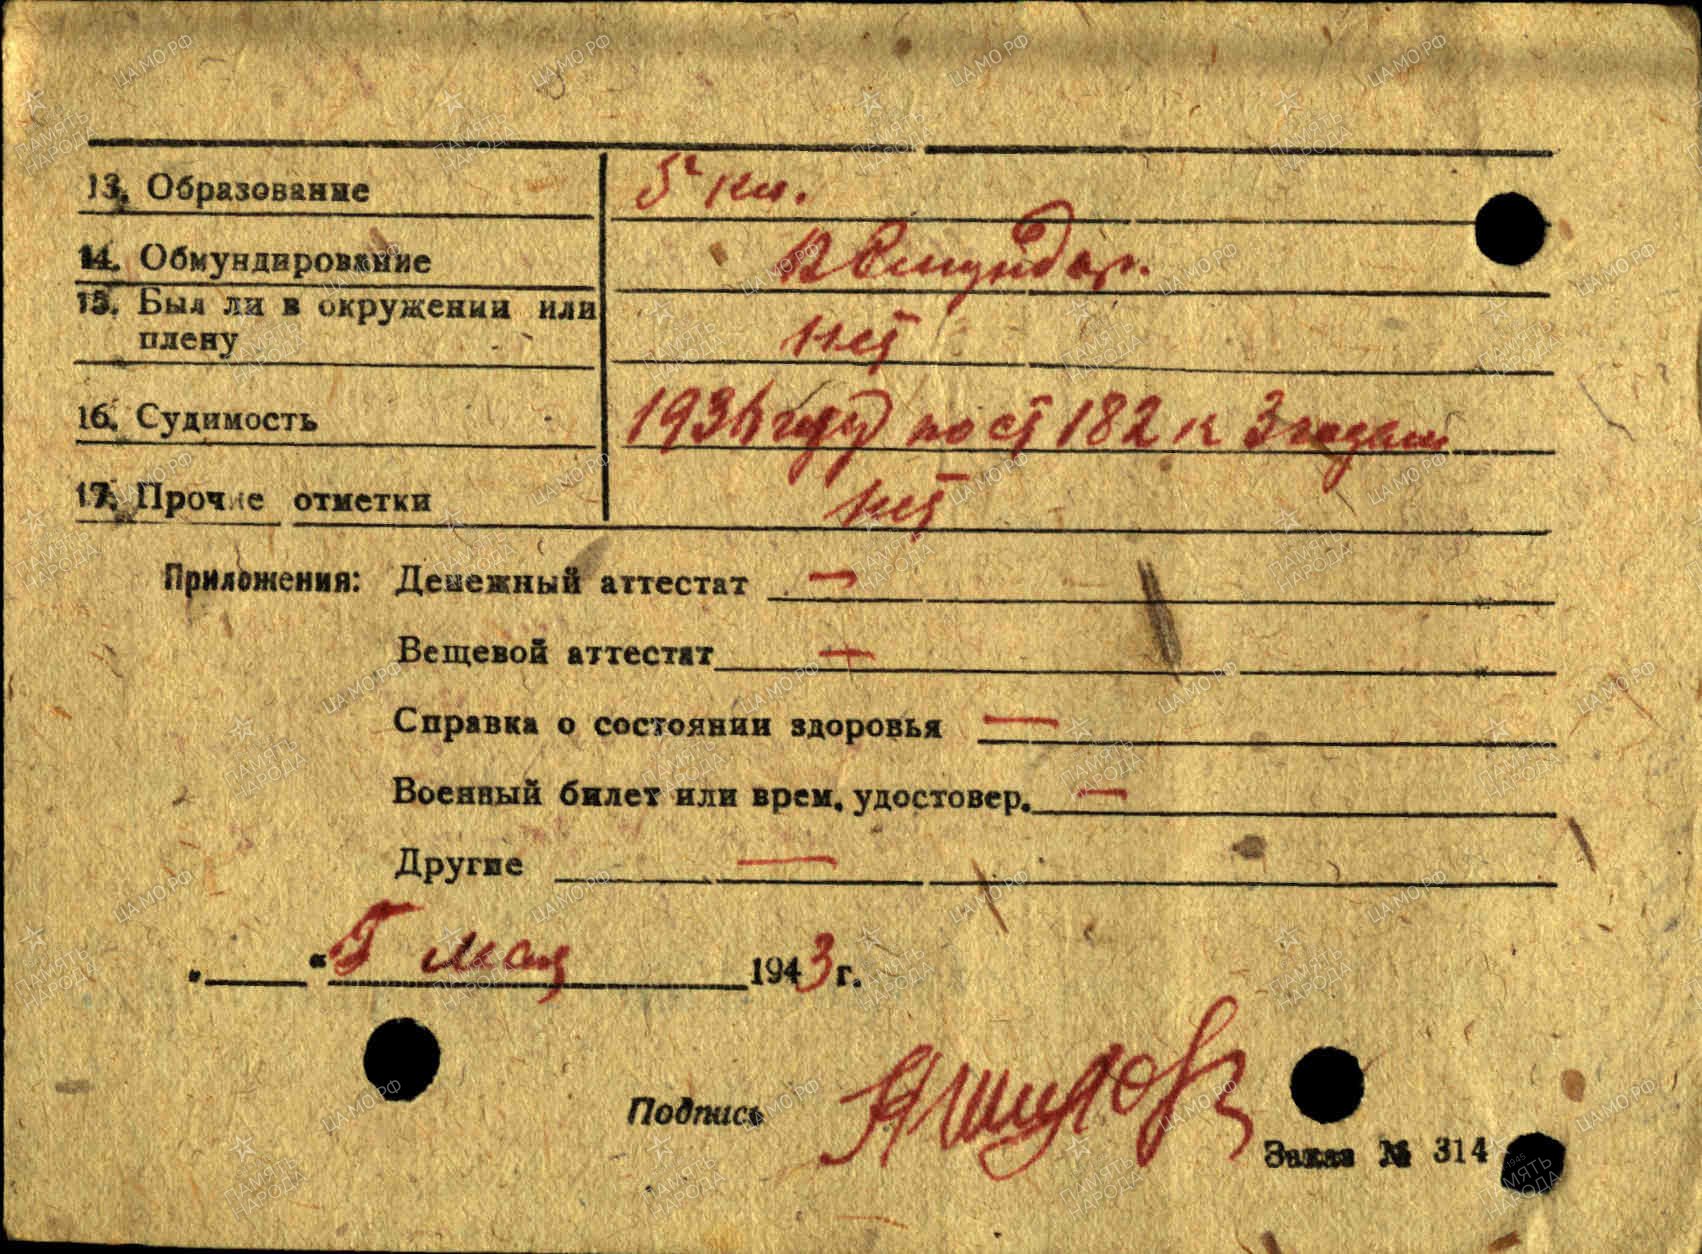 13. Образование 5 кл.
14. Обмундирование
15. Был ли в окружении или
плену нет
16. Судимость году по ст 182 к 3 годам
17. Прочие отметки нет
Приложения: Денежный аттестат —
Вещевой аттестат —
Справка о состоянии здоровья —
Военный билет или врем. удостовер. —
Другие —
„ “ 5 мая 1943 г.
Подпись
Заказ № 314
ПАМЯТЬ НАРОДА
ЦАМО.РФ